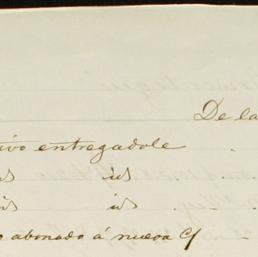 De la
ivo entregadole
id id
id id
o abonado á nueva C/